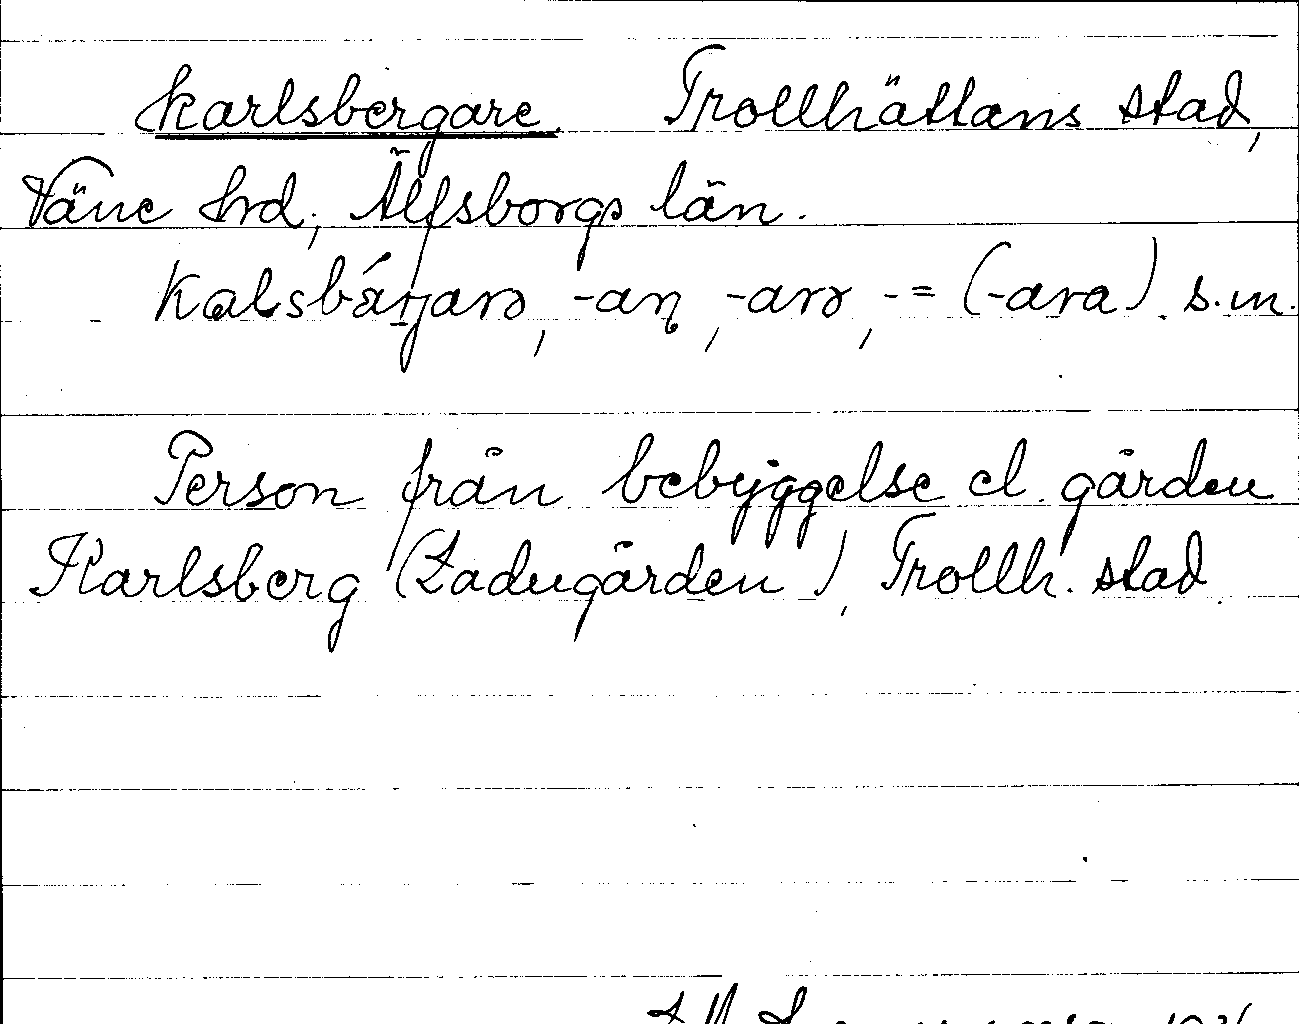 karlsbergare. Trollhättans stad,
Väne hrd, Älfsborgs län.
Kalsbárjarə, -an, -arə, -= (-ara). s.m.
Person från bebyggelse el. gården
Karlsberg (Ladugården), Trollh. stad.